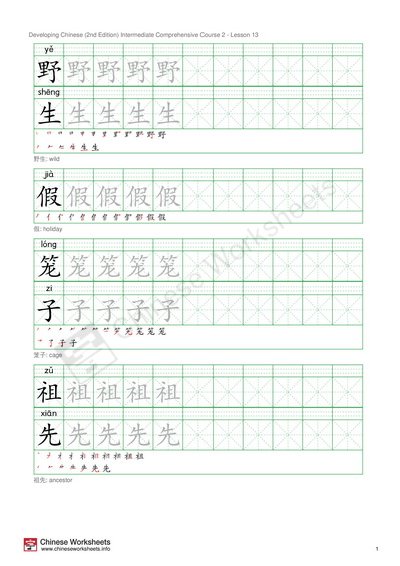 Developing Chinese (2nd Edition) Intermediate Comprehensive Course 2 - Lesson 13
yě
野 野 野 野 野
shēng
生 生 生 生 生
野生: wild
jià
假 假 假 假 假
假: holiday
lóng
笼 笼 笼 笼 笼
zi
子 子 子 子 子
笼子: cage
zǔ
祖 祖 祖 祖 祖
xiān
先 先 先 先 先
祖先: ancestor
Chinese Worksheets
Chinese Worksheets
www.chineseworksheets.info
1